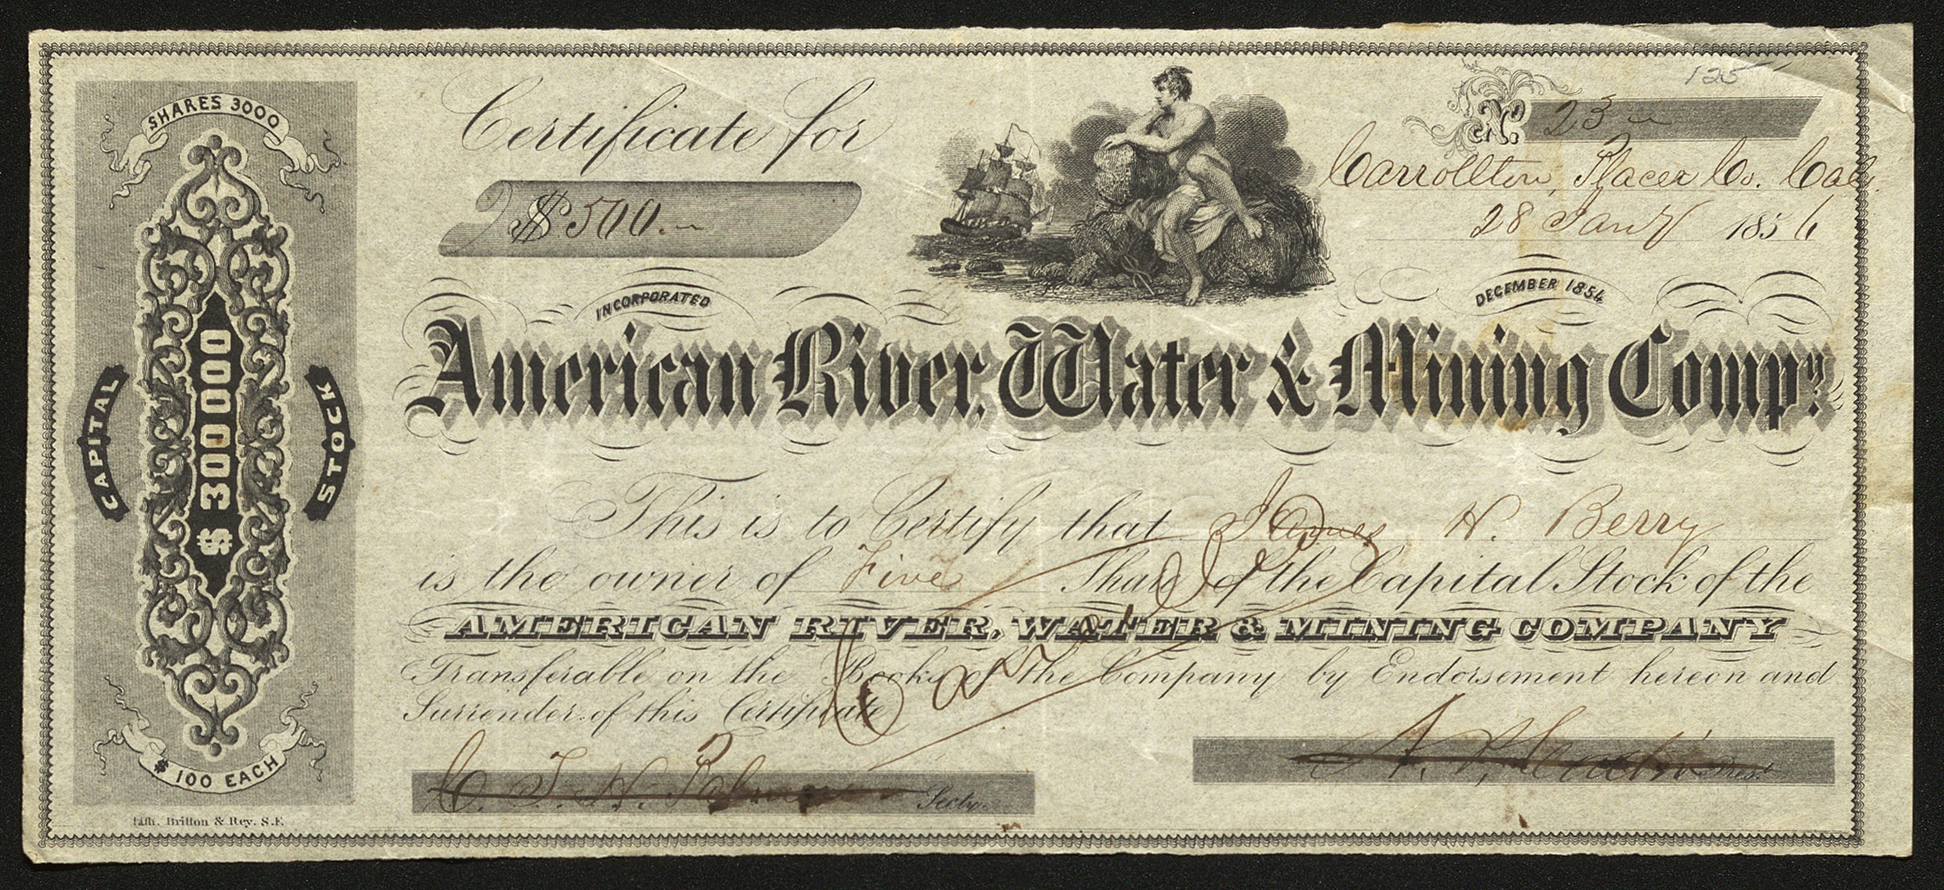 SHARES 3000
CAPITAL
$ 300000
STOCK
$ 100 EACH
Lith. Britton & Rey. S.F.
125
Certificate for
No. 23
$500.
Carrollton, Placer Co. Cal.
28 Jany 1856
INCORPORATED
DECEMBER 1854
American River, Water & Mining Compy.
This is to Certify that James H. Berry
is the owner of Five Shares of the Capital Stock of the
AMERICAN RIVER, WATER & MINING COMPANY
Transferable on the Books of the Company by Endorsement hereon and
Surrender of this Certificate
Canceled
C. T. H. Palmer Secty.
Prest.